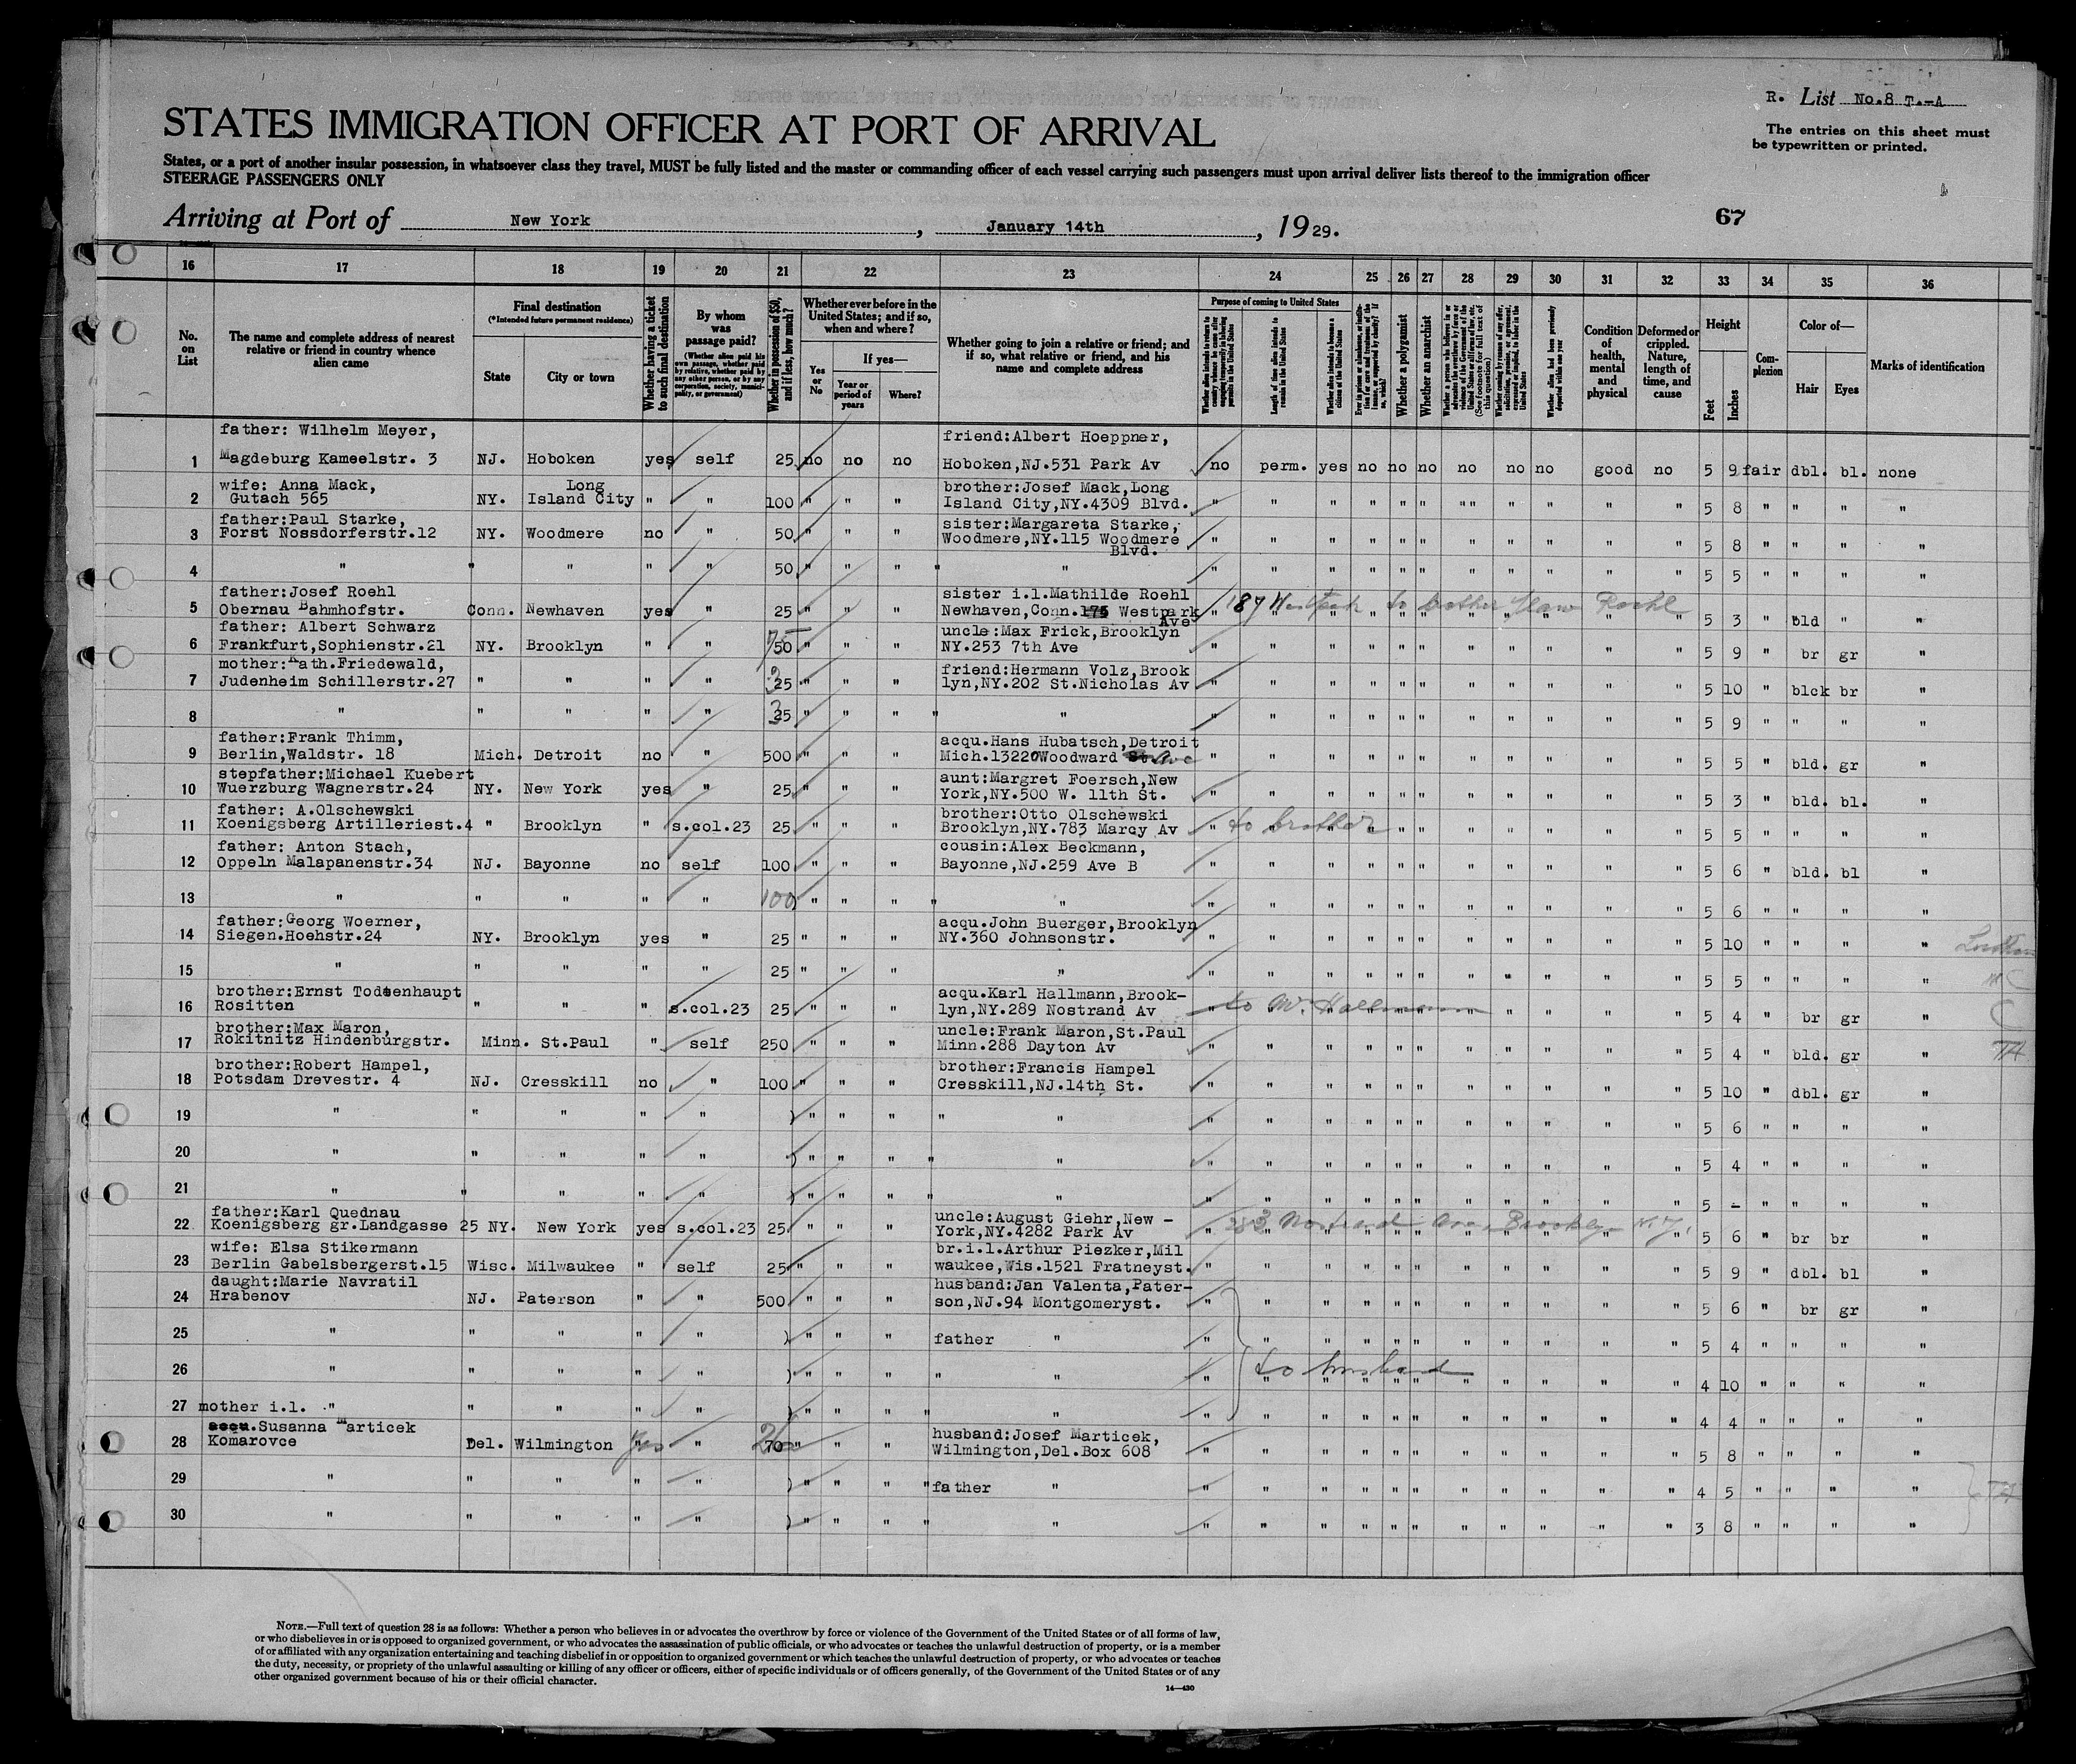 R. List No.8 T.-A
STATES IMMIGRATION OFFICER AT PORT OF ARRIVAL
The entries on this sheet must
be typewritten or printed.
States, or a port of another insular possession, in whatsoever class they travel, MUST be fully listed and the master or commanding officer of each vessel carrying such passengers must upon arrival deliver lists thereof to the immigration officer
STEERAGE PASSENGERS ONLY
Arriving at Port of New York, January 14th, 1929.
67
16 17 18 19 20 21 22 23 24 25 26 27 28 29 30 31 32 33 34 35 36
No. on List
The name and complete address of nearest relative or friend in country whence alien came
Final destination
(*Intended future permanent residence)
State
City or town
Whether having a ticket to such final destination
By whom was passage paid?
(Whether alien paid his own passage, whether paid by relative, whether paid by any other person, or by any corporation, society, municipality, or government)
Whether in possession of $50, and if less, how much?
Whether ever before in the United States; and if so, when and where?
Yes or No
If yes—
Year or period of years
Where?
Whether going to join a relative or friend; and if so, what relative or friend, and his name and complete address
Purpose of coming to United States
Length of time alien intends to remain in the United States
Whether alien intends to become a citizen of the United States
Whether a polygamist
Whether an anarchist
Condition of health, mental and physical
Deformed or crippled. Nature, length of time, and cause
Height
Feet
Inches
Complexion
Color of—
Hair
Eyes
Marks of identification
father: Wilhelm Meyer, friend:Albert Hoeppner,
1 Magdeburg Kameelstr. 3 NJ. Hoboken yes self 25 no no no Hoboken,NJ.531 Park Av no perm. yes no no no no no no good no 5 9 fair dbl. bl. none
wife: Anna Mack, Long brother:Josef Mack,Long
2 Gutach 565 NY. Island City " " 100 " " " Island City,NY.4309 Blvd. " " " " " " "" " " " " 5 8 " " " "
father:Paul Starke, sister:Margareta Starke,
3 Forst Nossdorferstr.12 NY. Woodmere no " 50 " " " Woodmere,NY.115 Woodmere " " " " " " " " " " " 5 8 " " " "
Blvd.
4 " " " " " 50 " " " " " " " " " " " " " " " " 5 5 " " " "
father:Josef Roehl sister i.l.Mathilde Roehl
5 Obernau Bahmhofstr. Conn. Newhaven yes " 25 " " " Newhaven,Conn.175 Westpark 187 Westpark to brother Roehl 5 3 " bld " "
Ave
father: Albert Schwarz uncle:Max Frick,Brooklyn
6 Frankfurt,Sophienstr.21 NY. Brooklyn " " 75 50 " " " NY.253 7th Ave " " " " " " " " " " " 5 9 " br gr "
mother:Kath.Friedewald, friend:Hermann Volz,Brook
7 Judenheim Schillerstr.27 " " " " 25 " " " lyn,NY.202 St.Nicholas Av " " " " " " " " " " " 5 10 " blck br "
8 " " " " " 25 " " " " " " " " " " " " " " " " 5 9 " " " "
father:Frank Thimm, acqu.Hans Hubatsch,Detroit
9 Berlin,Waldstr. 18 Mich. Detroit no " 500 " " " Mich.13220Woodward Ave " " " " " " " " " " " 5 5 " bld. gr "
stepfather:Michael Kuebert aunt:Margret Foersch,New
10 Wuerzburg Wagnerstr.24 NY. New York yes " 25 " " " York,NY.500 W. 11th St. " " " " " " " " " " " 5 3 " bld. bl. "
father: A.Olschewski brother:Otto Olschewski
11 Koenigsberg Artilleriest.4 " Brooklyn " s.col.23 25 " " " Brooklyn,NY.783 Marcy Av " to brother " " " " " " " " 5 5 " " " "
father: Anton Stach, cousin:Alex Beckmann,
12 Oppeln Malapanenstr.34 NJ. Bayonne no self 100 " " " Bayonne,NJ.259 Ave B " " " " " " " " " " " 5 6 " bld. bl "
13 " " " " " 100 " " " " " " " " " " " " " " " " 5 6 " " " "
father:Georg Woerner, acqu.John Buerger,Brooklyn
14 Siegen.Hoehstr.24 NY. Brooklyn yes " 25 " " " NY.360 Johnsonstr. " " " " " " " " " " " 5 10 " " " "
15 " " " " " 25 " " " " " " " " " " " " " " " 5 5 " " " "
brother:Ernst Todtenhaupt acqu.Karl Hallmann,Brook-
16 Rositten " " " s.col.23 25 " " " lyn,NY.289 Nostrand Av to Mr. Hallmann " " " " " 5 4 " br gr "
brother:Max Maron, uncle:Frank Maron,St.Paul
17 Rokitnitz Hindenburgstr. Minn. St.Paul " self 250 " " " Minn.288 Dayton Av " " " " " " " " " " " 5 4 " bld. gr "
brother:Robert Hampel, brother:Francis Hampel
18 Potsdam Drevestr. 4 NJ. Cresskill no " 100 " " " Cresskill,NJ.14th St. " " " " " " " " " " " 5 10 " dbl. gr "
19 " " " " " ) " " " " " " " " " " " " " " " " " 5 6 " " " "
20 " " " " " ) " " " " " " " " " " " " " " " " " 5 4 " " " "
21 " " " " " ) " " " " " " " " " " " " " " " " " 5 - " " " "
father:Karl Quednau uncle:August Giehr,New -
22 Koenigsberg gr.Landgasse 25 NY. New York yes s.col.23 25 " " " York,NY.4282 Park Av 283 Nostrand Ave, Brooklyn N.Y. 5 6 " br br "
wife: Elsa Stikermann br.i.l.Arthur Piezker,Mil
23 Berlin Gabelsbergerst.15 Wisc. Milwaukee " self 25 " " " waukee,Wis.1521 Fratneyst. " " " " " " " " " " " 5 9 " dbl. bl "
daught:Marie Navratil husband:Jan Valenta,Pater-
24 Hrabenov NJ. Paterson " " 500 " " " son,NJ.94 Montgomeryst. " " " " " " " " " " " 5 6 " br gr "
25 " " " " " ) " " " father " " " " " " " " " " " " 5 4 " " " "
26 " " " " " ) " " " " " " to husband " " " " " 4 10 " " " "
27 mother i.l. " " " " " ) " " " " " " " " " " " " " " " " " 4 4 " " " "
acqu.Susanna Marticek husband:Josef Marticek,
28 Komarovce Del. Wilmington yes " 70 " " " Wilmington,Del.Box 608 " " " " " " " " " " " 5 8 " " " "
29 " " " " " ) " " " "father " " " " " " " " " " " " 4 5 " " " "
30 " " " " " ) " " " " " " " " " " " " " " " " " 3 8 " " " "
NOTE.—Full text of question 28 is as follows: Whether a person who believes in or advocates the overthrow by force or violence of the Government of the United States or of all forms of law,
or who disbelieves in or is opposed to organized government, or who advocates the assassination of public officials, or who advocates or teaches the unlawful destruction of property, or is a member
of or affiliated with any organization entertaining and teaching disbelief in or opposition to organized government or which teaches the unlawful destruction of property, or who advocates or teaches
the duty, necessity, or propriety of the unlawful assaulting or killing of any officer or officers, either of specific individuals or of officers generally, of the Government of the United States or of any
other organized government because of his or their official character.
14—430